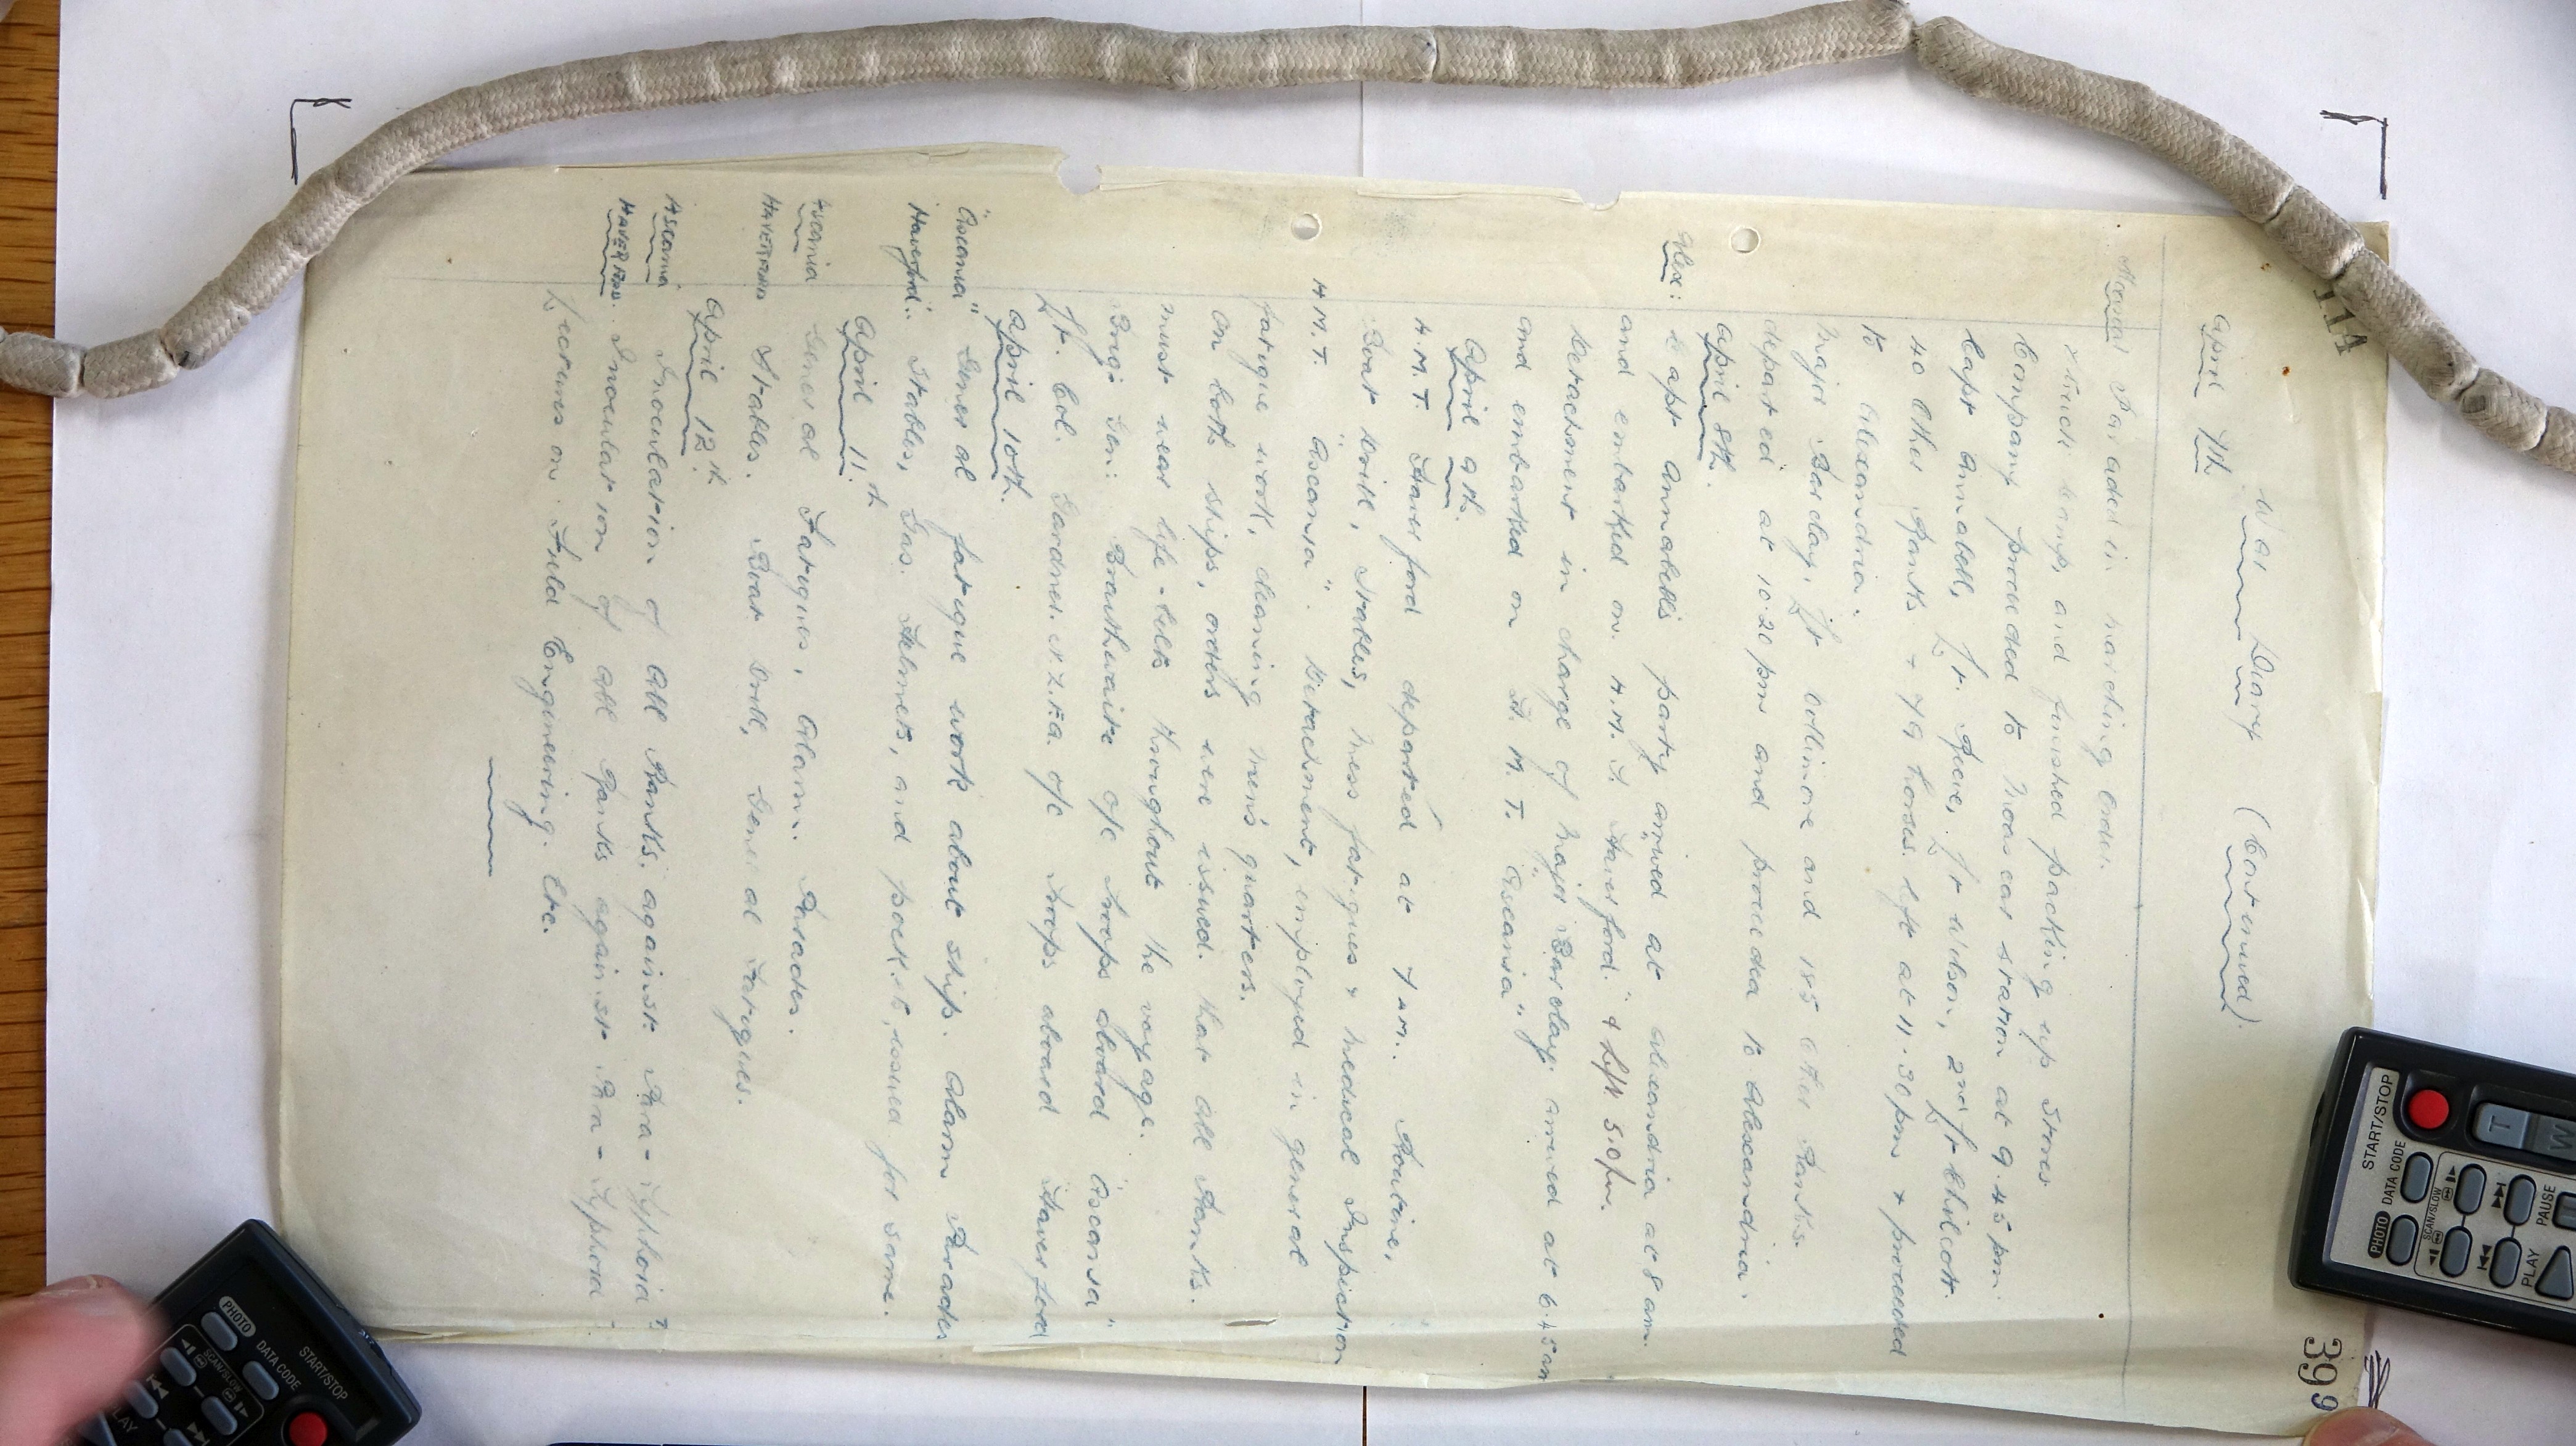 114
399
War Diary (Continued).
April 7th
Moascar Paraded in marching order.
Struck camp, and finished packing up stores
Company proceeded to Moascar station at 9.45 pm
Capt Annabell, Lt. Rice, Lt Wilson, 2nd Lt Chilcott.
40 Other Ranks + 79 horses left at 11.30 pm + proceeded
to Alexandria.
Major Barclay, Lt Collimore and 185 other Ranks.
departed at 10.20 pm and proceeded to Alexandria.
April 8th.
Alex: Capt Annabell's party arrived at Alexandria at 8 am.
and embarked on H.M.T. Haverford. " & left 5.0 pm.
Detachment in charge of Major Barclay arrived at 6.45 am
and embarked on H.M.T. "Ascania"
April 9th.
H.M.T. Haverford departed at 7 AM. Routine,
Boat drill, Stables, Mess fatigues & Medical Inspection
H.M.T. "Ascania". Detachment, employed in general
fatigue work, cleaning men's quarters.
On both ships, orders were issued that all Ranks.
must wear life-belts throughout the voyage.
Brig: Gen: Braithwaite o/c Troops aboard "Ascania"
Lt. Col. Gardner. N.Z.F.A. o/c Troops aboard Haverford
April 10th.
"Ascania" General fatigue work about ship. Alarm Parades
Haverford: Stables, Gas. Helmets, and pockets, issued for same.
April 11th
Ascania General Fatigues, Alarm. Parades.
HAVERFORD Stables. Boat Drill, General Fatigues.
April 12th
Ascania Inoculation of All Ranks. against. Para-Typhoid
HAVERFORD. Inoculation of All Ranks against Para-Typhoid
Lectures on Field Engineering. Etc.
START/STOP
PHOTO
DATA CODE
T
W
SCAN/SLOW
PLAY
PAUSE
PHOTO
DATA CODE
START/STOP
SCAN/SLOW
PLAY